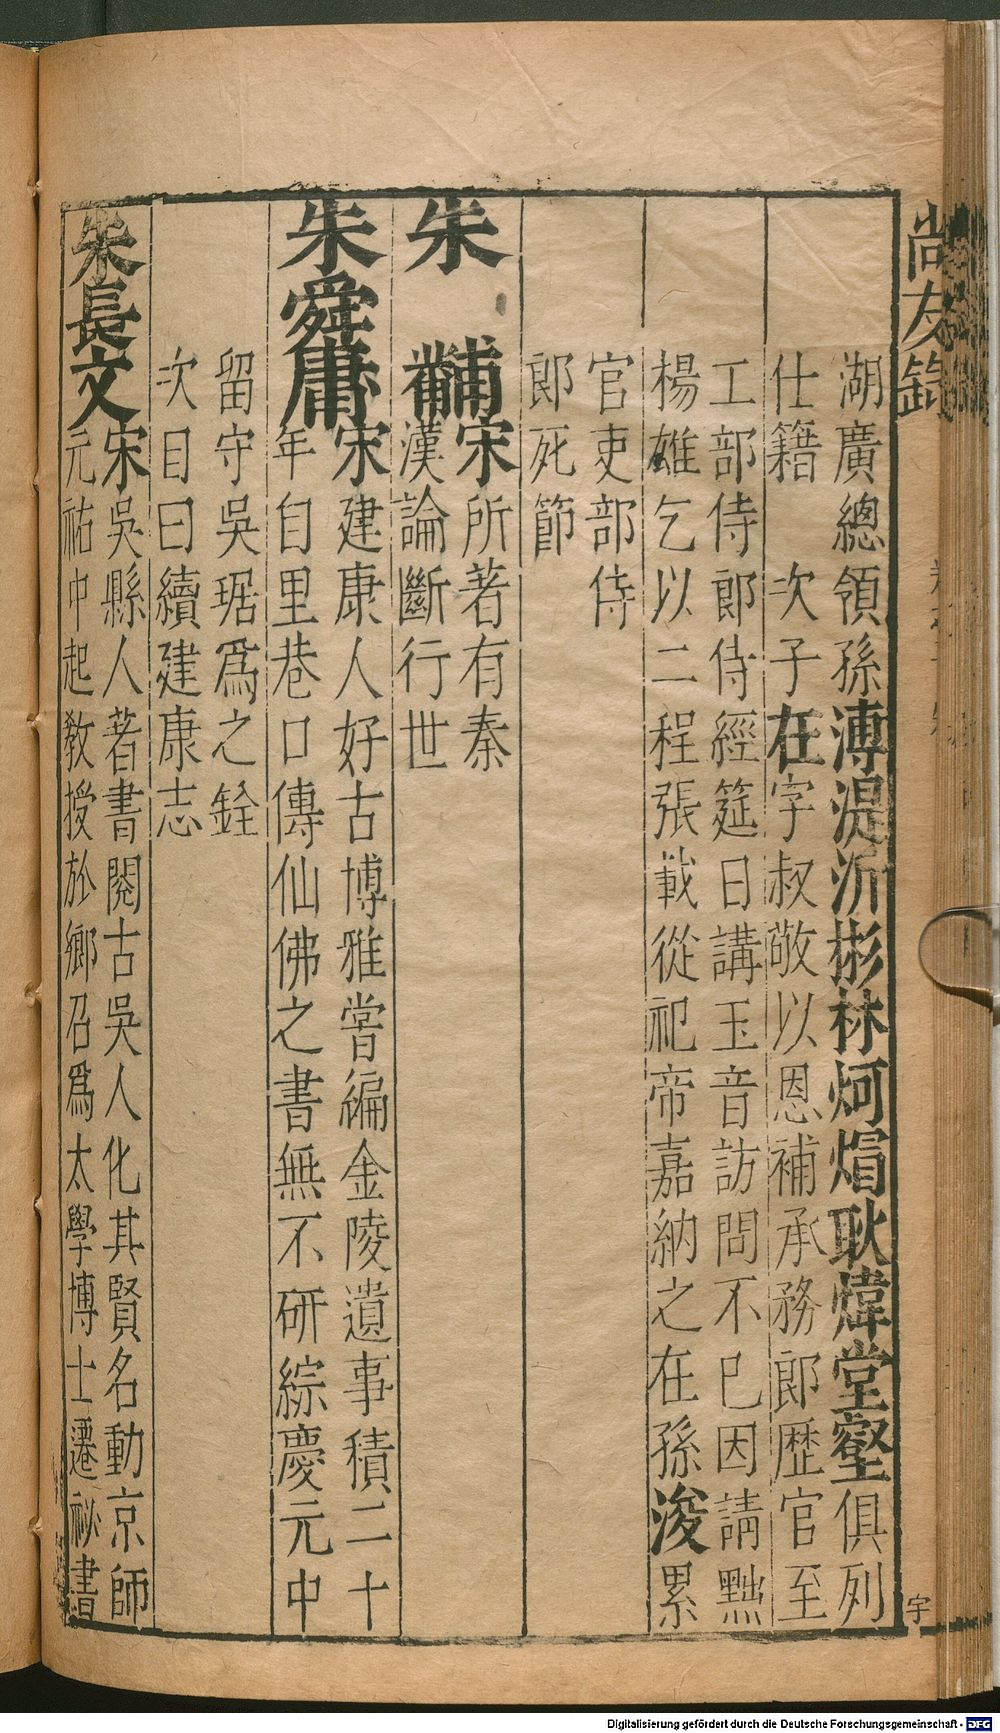 尚友錄
宇
湖廣總領孫溥湜沂彬林炣焆耿煒堂壑俱列
仕籍 次子在字叔敬以恩補承務郎歴官至
工部侍郎侍經筵日講玉音訪問不已因請黜
楊雄乞以二程張載從祀帝嘉納之在孫浚累
官吏部侍
郎死節
朱黼宋所著有秦
漢論斷行世
朱舜庸宋建康人好古博雅嘗編金陵遺事積二十
年自里巷口傳仙佛之書無不研綜慶元中
留守吳琚爲之銓
次目曰續建康志
朱長文宋吳縣人著書閱古吳人化其賢名動京師
元祐中起教授於鄉召爲太學博士遷祕書
Digitalisierung gefördert durch die Deutsche Forschungsgemeinschaft - DFG